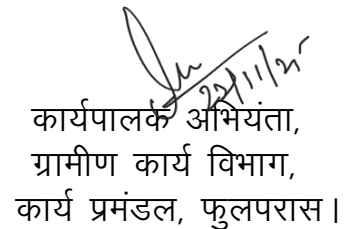 22/11/25
कार्यपालक अभियंता,
ग्रामीण कार्य विभाग,
कार्य प्रमंडल, फुलपरास।